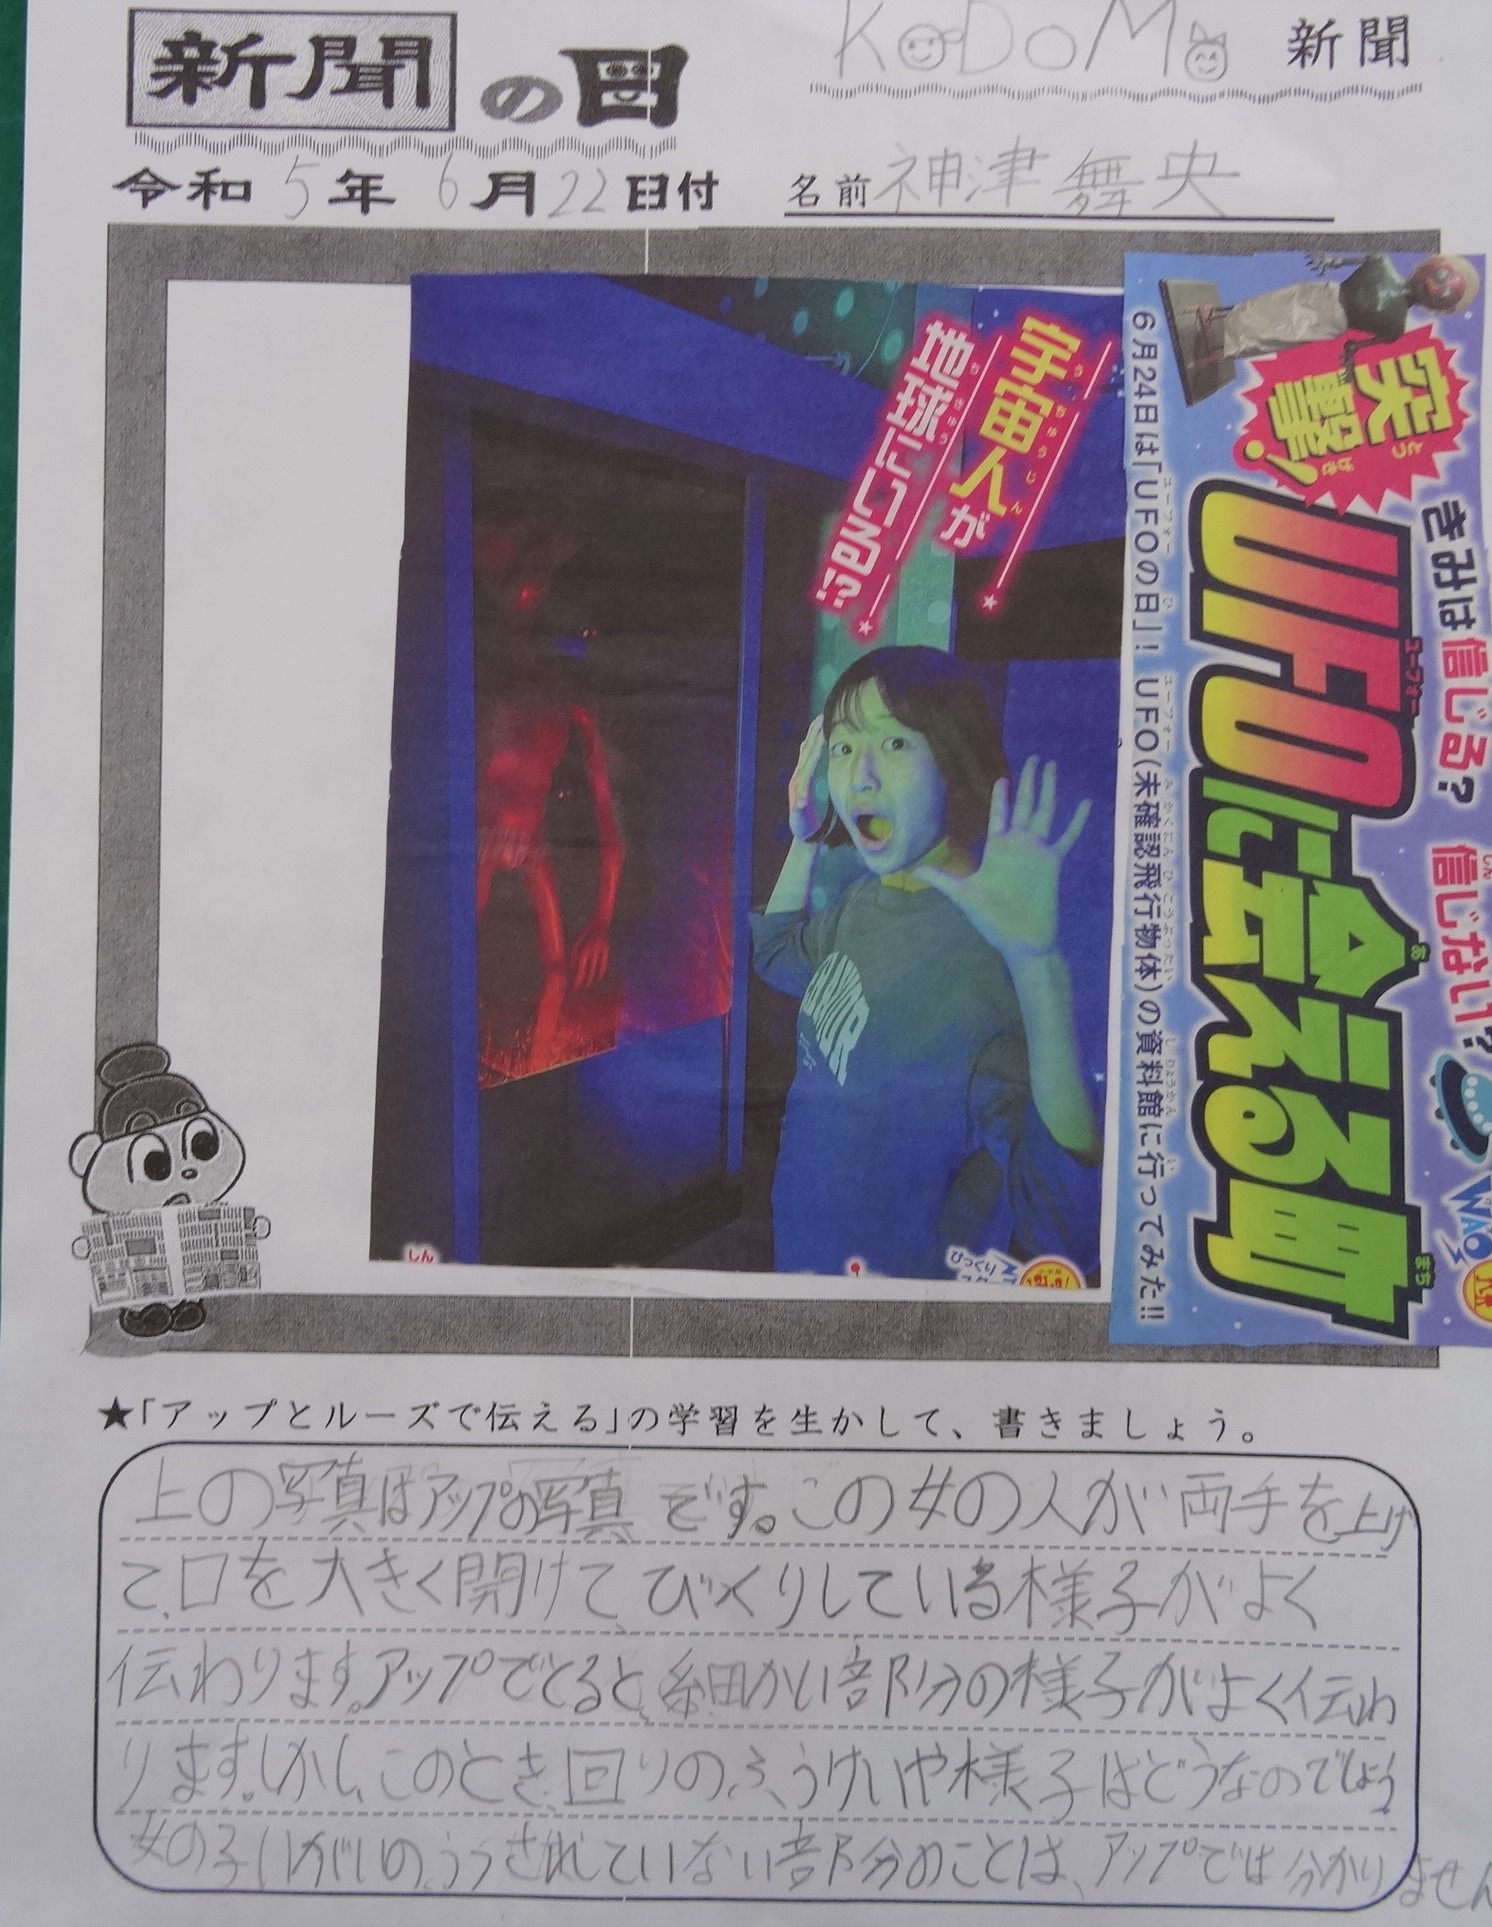 新聞の日
KoDoMo 新聞
令和5年6月22日付
名前 神津舞央
きみは信じる? 信じない?
突撃!
UFOに会える町
6月24日は「UFOの日」! UFO(未確認飛行物体)の資料館に行ってみた!!
WAO
宇宙人が
地球にいる!?
しん
びっくり
★「アップとルーズで伝える」の学習を生かして、書きましょう。
上の写真はアップの写真です。この女の人が両手を上げ
て、口を大きく開けて、びっくりしている様子がよく
伝わります。アップでとると、細かい部分の様子がよく伝わ
ります。しかし、このとき、回りのふうけいや様子はどうなのでしょう
女の子いがいの、うつされていない部分のことは、アップでは分かりません